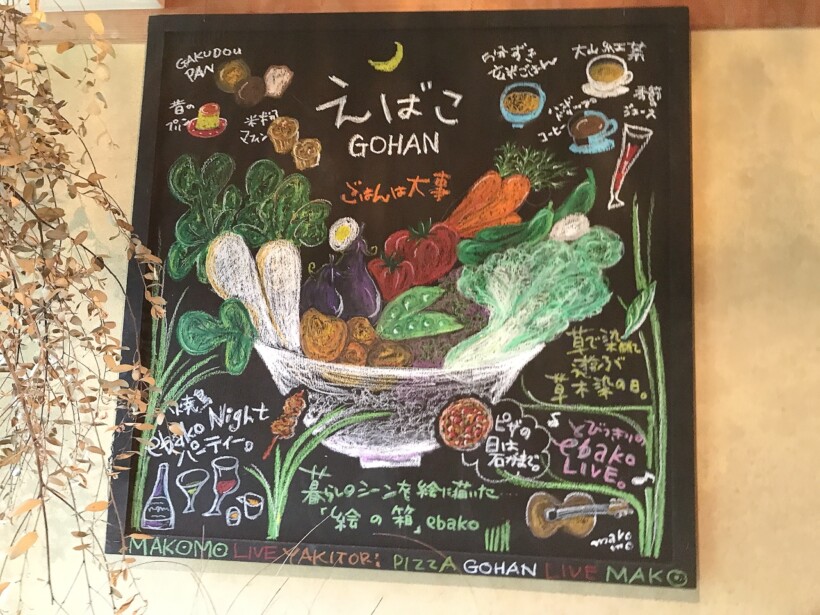 GAKUDOU
PAN
昔の
プリン
米粉
マフィン
えばこ
GOHAN
ごはんは大事
分ずき
玄米ごはん
大山紅茶
ハンドドリップ
コーヒー
季節
ジュース
草で染めて
遊ぶ
草木染の日。
焼鳥
ebako Night
パーティー。
ピザの
日は
石がまで。
とびっきりの
ebako
LIVE。
暮らしのシーンを絵に描いた…
「絵の箱」ebako
mako
mo
MAKOMO LIVE YAKITORi PIZZA GOHAN LIVE MAKO